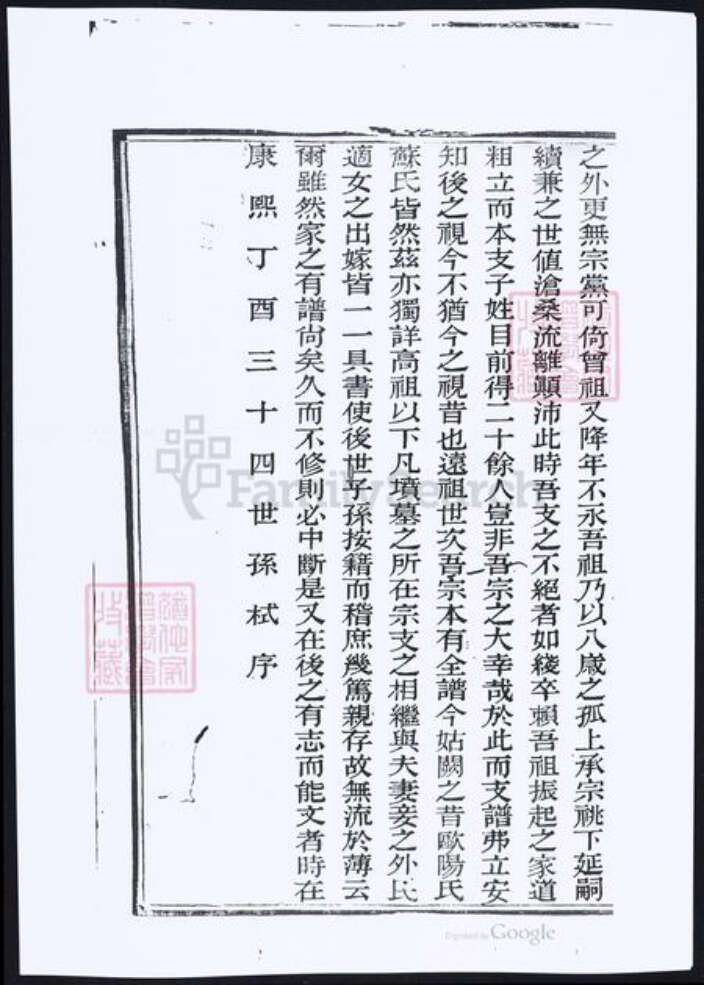 之外更無宗黨可倚曾祖又降年不永吾祖乃以八歲之孤上承宗祧下延嗣
續兼之世值滄桑流離顛沛此時吾支之不絕者如綫卒賴吾祖振起之家道
粗立而本支子姓目前得二十餘人豈非吾宗之大幸哉於此而支譜弗立安
知後之視今不猶今之視昔也遠祖世次吾宗本有全譜今姑闕之昔歐陽氏
蘇氏皆然茲亦獨詳高祖以下凡墳墓之所在宗支之相繼與夫妻妾之外氏
適女之出嫁皆一一具書使後世子孫按籍而稽庶幾篤親存故無流於薄云
爾雖然家之有譜尙矣久而不修則必中斷是又在後之有志而能文者時在
康熙丁酉三十四世孫栻序
FamilySearch
Digitized by Google